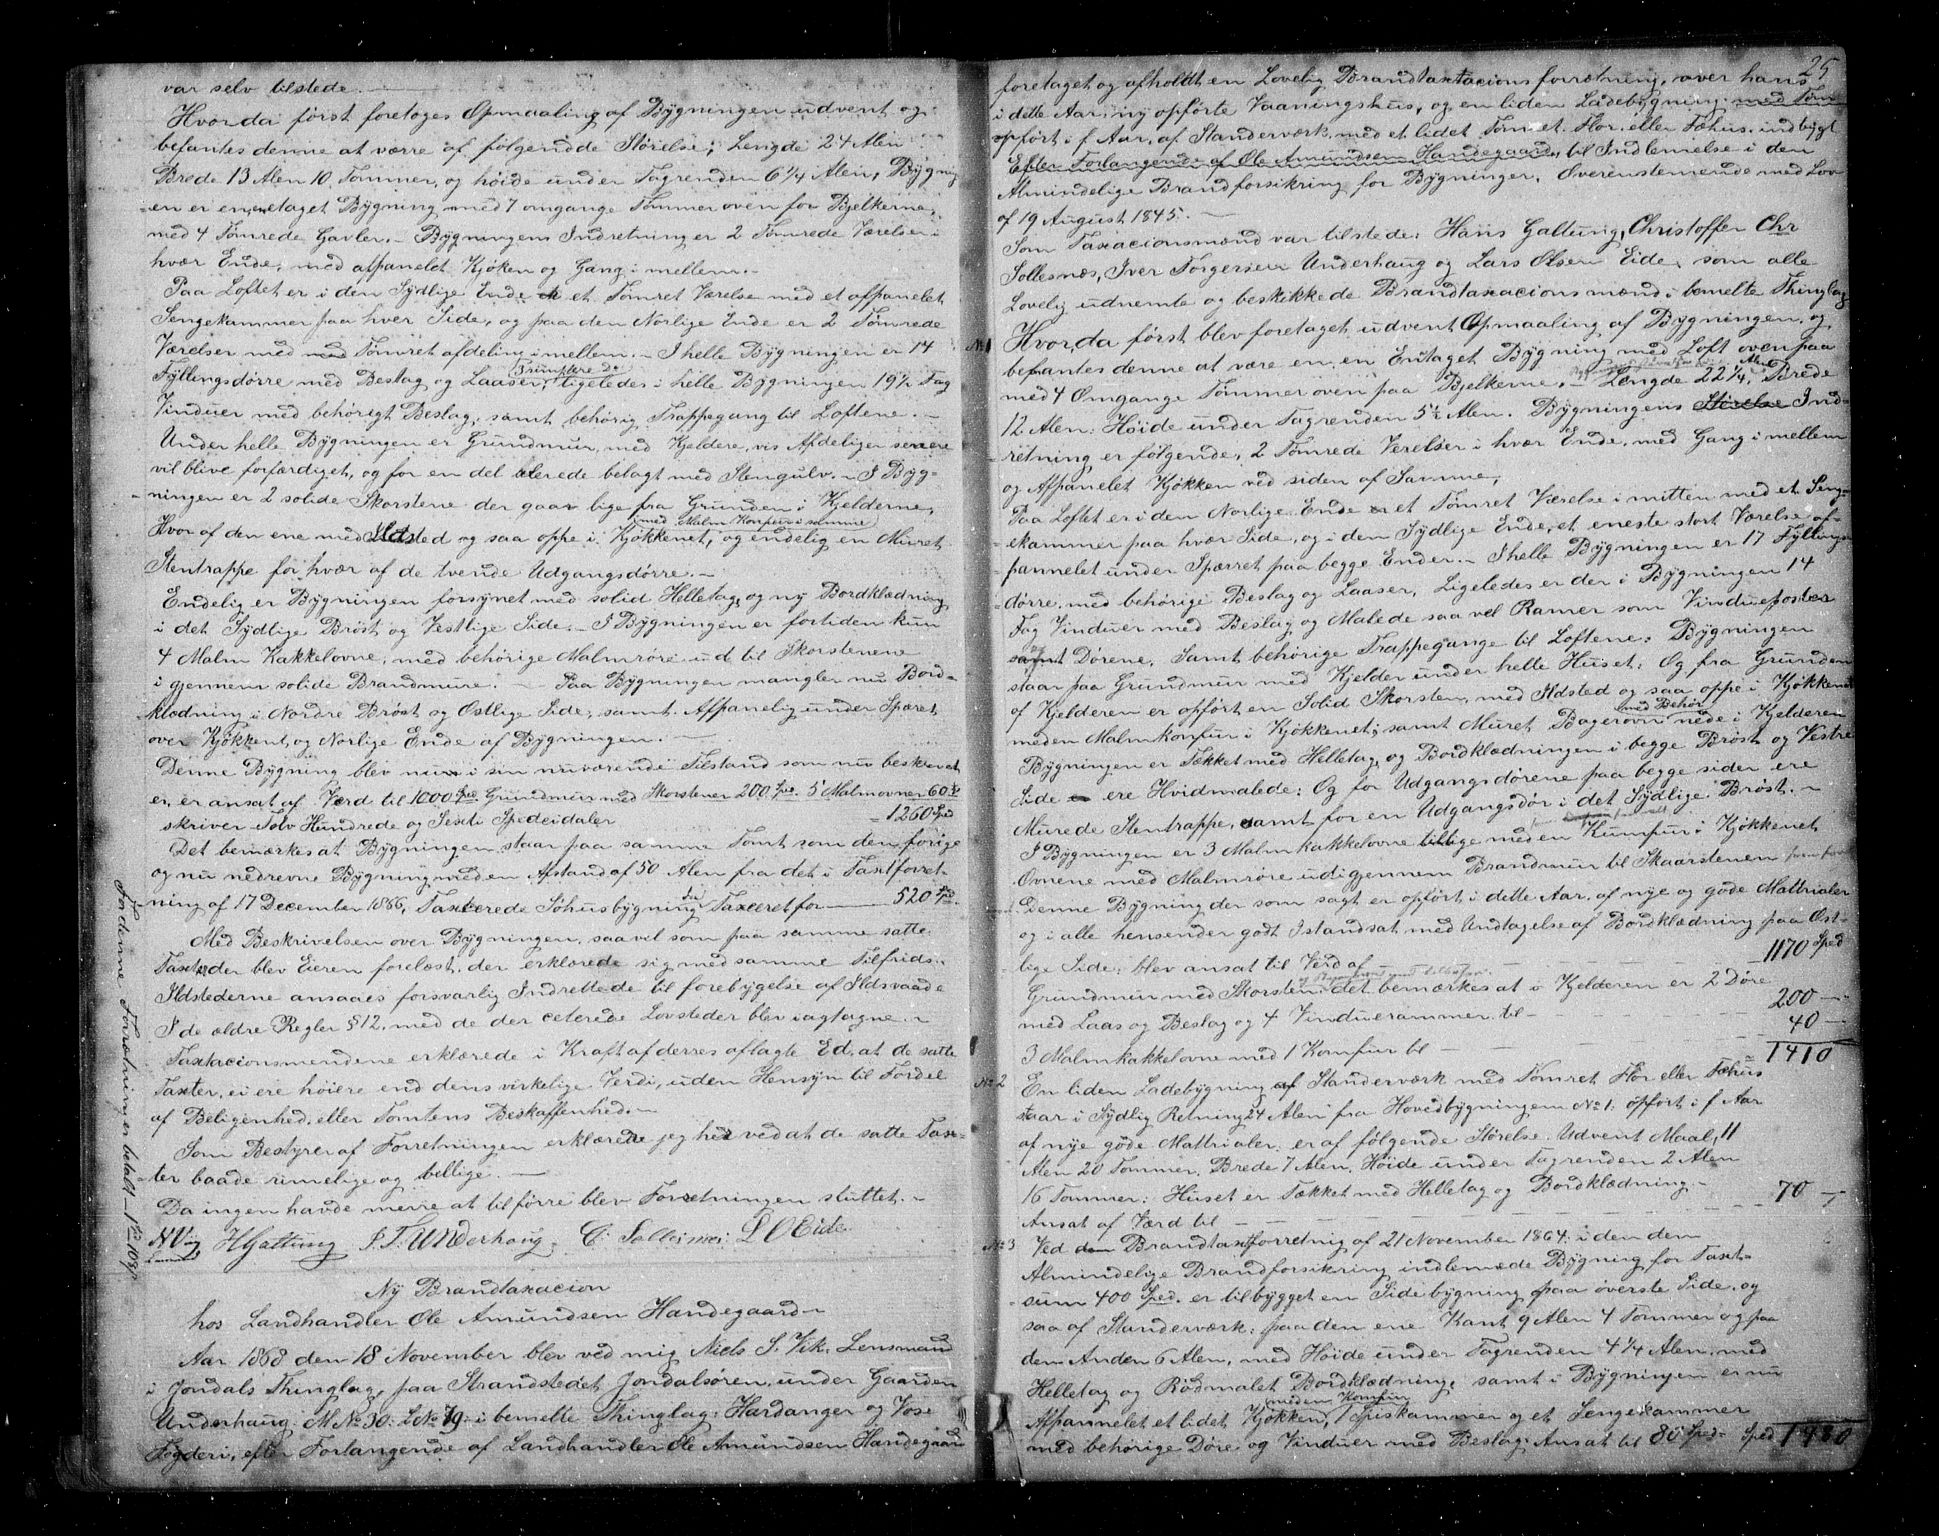 var selv tilstede.
Hvor da først foretoges Opmaaling af Bygningen udvent og
befantes denne at værre af følgende Størelse; Lengde 24 Alen
Brede 13 Alen 10 Tommer, og høide under Tagrenden 6 1/4 Alen, Bygning
en er en etaget Bygning med 7 omgange Tømmer oven for Bjelkerne,
med 4 Tømrede Gavler. Bygningens Indretning er 2 Tømrede Værelser i
hvær Ende, med afpanelt Kjøken og Gang i mellem.
Paa Loftet er i den Sydlige Ende et Tømret Værelse med et afpanelet
Sengekammer paa hver Side, og paa den Norlige Ende er 2 Tømrede
Værelser med Tømret afdeling i mellem. I helle Bygningen er 14
Fyllingsdørre med Beslag og Laaser, ligeledes i helle Bygningen 19 1/2 Fag
Vinduer med behørigt Beslag, samt behørig Trappegang til Loftene.
Under helle Bygningen er Grundmur, med Kjeldere, vis Afdelinger senere
vil blive forfærdiget, og for en del allerede belagt med Stengulv. I Byg-
ningen er 2 solide Skorstene der gaar lige fra Grunden i Kjelderne,
med Malm Komfur i samme
Hvor af den ene med Ildsted og saa oppe i Kjøkkenet, og endelig en Muret
Stentrappe for hvær af de tvende Udgangsdørre.
Endelig er Bygningen forsynet med solid Helletag, og ny Bordklædning
i det Sydlige Brøst og Vestlige Side. I Bygningen er fortiden kun
4 Malm Kakkelovne, med behørige Malmrøre ud til Skorstenene
igjennem solide Brandmure. Paa Bygningen mangler nu Bord-
klædning i Nordre Brøst og Østlige Side, samt Afpanelig under Spæret
over Kjøkkent, og Norlige Ende af Bygningen.
Denne Bygning blev nu i sin nuværende Tilstand som nu beskrevet
er, er ansat af Værd til 1000 Spd Grundmur med Skorstener 200 Spd. 5 Malmovner 60 Sp
skriver Tolv Hundrede og Sexti Spedeidaler = 1260 Sped
Det bemærkes at Bygningen staar paa samme Tomt som den forige
og nu nedrevne Bygning med en Afstand af 50 Alen fra det i Taxtforret
ning af 17 December 1866, Taxerede Søhusbygning Taxeret for 520 Spd.
Med Beskrivelsen over Bygningen, saavel som paa samme satte
Taxter blev Eieren forelæst, der erklærede sig med samme Tilfrids.
Ildstederne ansaaes forsvarlig Indrettede til forebygelse af Ildsvaade
I de ældre Regler § 12, med de der citerede Lovsteder blev iagtagne.
Taxtacionsmendene erklærede i Kraft af derres aflagte Ed, at de satte
Taxter, ei ere høiere end dens virkelige Verdi, uden Hensyn til Fordel
af Beligenhed, eller Tomtens Beskaffenhed.
Som Bestyrer af Forretningen erklærede jeg hed ved at de satte Tax-
ter baade rimelige og billige.
Da ingen havde mere at tilførre blev Forretningen sluttet.
NVig HGaltung I.T. Underhaug C. Sollesnes L O Eide
For denne Forretning er betalt
Ny Brandtaxacion
hos Landhandler Ole Amundsen Handegaard
Aar 1868 den 18 November blev ved mig Niels S. Vik, Lensmand
i Jondals Thinglag, paa Strandstedet Jondalsøren, under Gaarden
Underhaug M No 30 L No 79 i bemelte Thinglag; Hardanger og Vose
Fogderi, efter Forlangende af Landhandler Ole Amundsen Handegaard
25
foretaget og afholdt en Lovelig Brandtaxtacions forretning, over hans
i dette Aar, ny opførte Vaaningshus, og en liden Ladebygning
opført i f Aar, af Standerværk, med et lidet Tømret Flor, eller Fæhus, indbygt
Efter Forlangende af Ole Amundsen Handegaard, til Indlemelse i den
Almindelige Brandforsikring for Bygninger, Overenstemende med Lov
of 19 August 1845.
Som Taxacionsmænd var tilstede: Hans Galtung, Christoffer Chr
Sollesnæs, Iver Torgersen Underhaug og Lars Olsen Eide, som alle
Lovelig udnemte og beskikkede Brandtaxacionsmænd i bemelte Thinglag
No 1 Hvor da først blev foretaget udvent Opmaaling af Bygningen, og
befantes denne at være en en Enetaget Bygning med Loft oven paa
med 4 Omgange Tømmer oven paa Bjelkerne. Lengde 22 1/4, Brede
12 Alen: Høide under Tagrenden 5 1/2 Alen. Bygningens Størelse Ind-
retning er følgende, 2 Tømrede Verelser i hvær Ende, med Gang i mellem
og Afpanelet Kjøkken ved siden af Samme,
Paa Loftet er i den Norlige Ende et Tømret Værelse i mitten med et Seng-
ekammer paa hvær Side, og i den Sydlige Ende, et eneste stort Værelse af-
pannelet under Spærret paa begge Ender. I helle Bygningen er 17 Fyllings
dørre, med behørige Beslag og Laaser, Ligeledes er der i Bygningen 14
Fag Vinduer med Beslag og Malede saa vel Ramer som Vinduesposter
samt Dørene. Samt behørige Trappegange til Loftene: Bygningen
staar paa Grundmur med Kjelder under helle Huset: Og fra Grunden
af Kjelderen er opført en Solid Skorsten, med Ildsted og saa oppe i Kjøkkenet
med Behør
med en Malmkomfur i Kjøkkenet; samt Muret Bagerovn nede i Kjelderen
Bygningen er Tækket med Helletag, og Bordklædningen i begge Brøst og Vestre
Side ere Hvidmalede: Og for Udgangsdørene paa begge sider ere
Murede Stentrappe, samt for en Udgangsdør i det Sydlige Brøst.
I Bygningen er 3 Malmkakkelovne tillige med en Kumfur i Kjøkkenet
Ovnene med Malmrøre ud igjennem Brandmur til Skaarstenen
Denne Bygning der som sagt er opført i dette Aar, af nye og gode Mattrialer
og i alle hensender godt Istandsat med Undtagelse af Bordklædning paa Øst-
lige Side; blev ansat til Verd af 1170 Sped
Grundmur med Skorsten, det bemærkes at i Kjelderen er 2 Døre
med Laas og Beslag og 4 Vinduerammer til 200
3 Malmkakkelovne med 1 Komfur til 40
1410
No 2 En liden Ladebygning af Standerværk med Tømret Flor eller Fæhus
staar i Sydlig Retning 24 Alen fra Hovedbygningen No 1: opført i f Aar
af nye gode Mattrialer: er af følgende Størelse. Udvent Maal, 11
Alen 20 Tommer. Brede 7 Alen. Høide under Tagrenden 2 Alen
16 Tommer: Huset er Tækket med Helletag og Bordklædning
Ansat af Værd til 70
No 3 Ved Brandtaxtforretnig af 21 November 1864: i den dem
Almindelige Brandforsikring indlemede Bygning, for Taxt-
sum 400 Sped. er tilbygget en Sidebygning paa øverste Side, og
saa af Standerværk: paa den ene Kant 9 Alen 4 Tommer og paa
den Anden 6 Alen, med Høide under Tagrenden 4 1/4 Alen, med
Helletag og Rødmalet Bordklædning, samt i Bygningen er nu
med en Komfur
Afpannelet et lidet Kjøkken, 1 Spiskammer og et Sengekammer
med behørige Døre og Vinduer med Beslag: Ansat til 80 Sped. Sped 1480